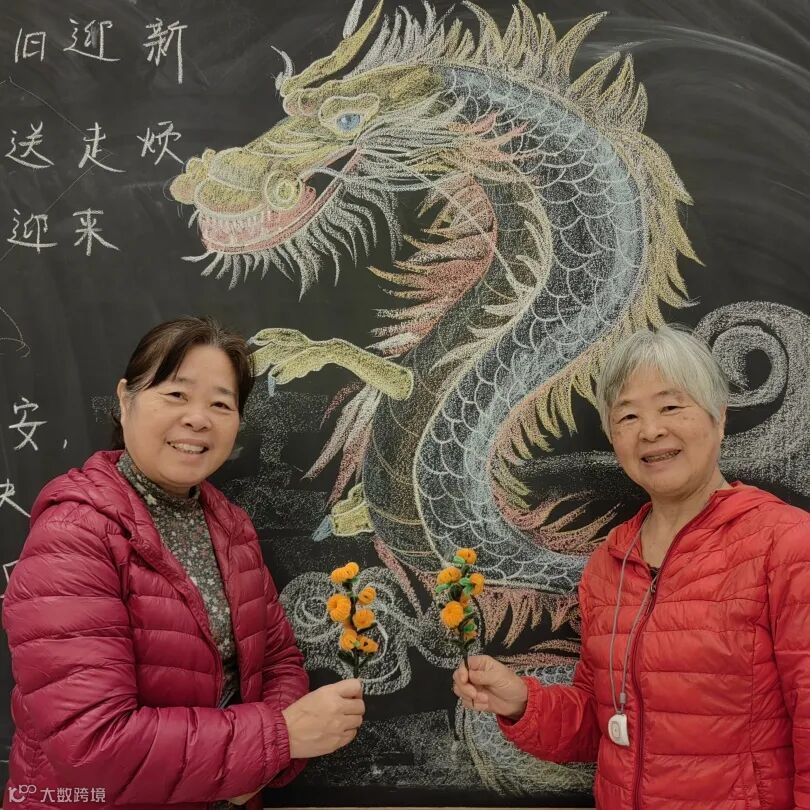 旧迎新
送走烦
迎来
安,
大数跨境